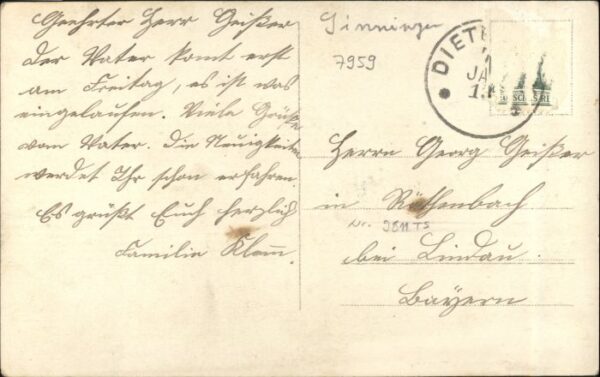 Geehrter Herr Geißer
Der Vater komt erst
am Freitag, es ist was
eingelaufen. Viele Grüße
vom Vater. Die Neuigkeiten
werdet Ihr schon erfahren.
Es grüßt Euch herzlich
Familie Klemm.
7959
DIET
JA
Herrn Georg Geißer
in Röthenbach
Nr.
bei Lindau.
Bayern